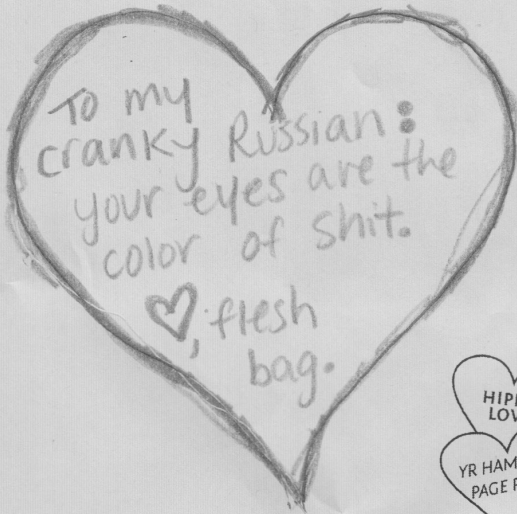 To my
cranky Russian:
your eyes are the
color of shit.
♡, flesh
bag.
YR
PAGE